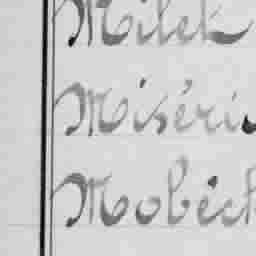 Milek
Miséri
Mobéck